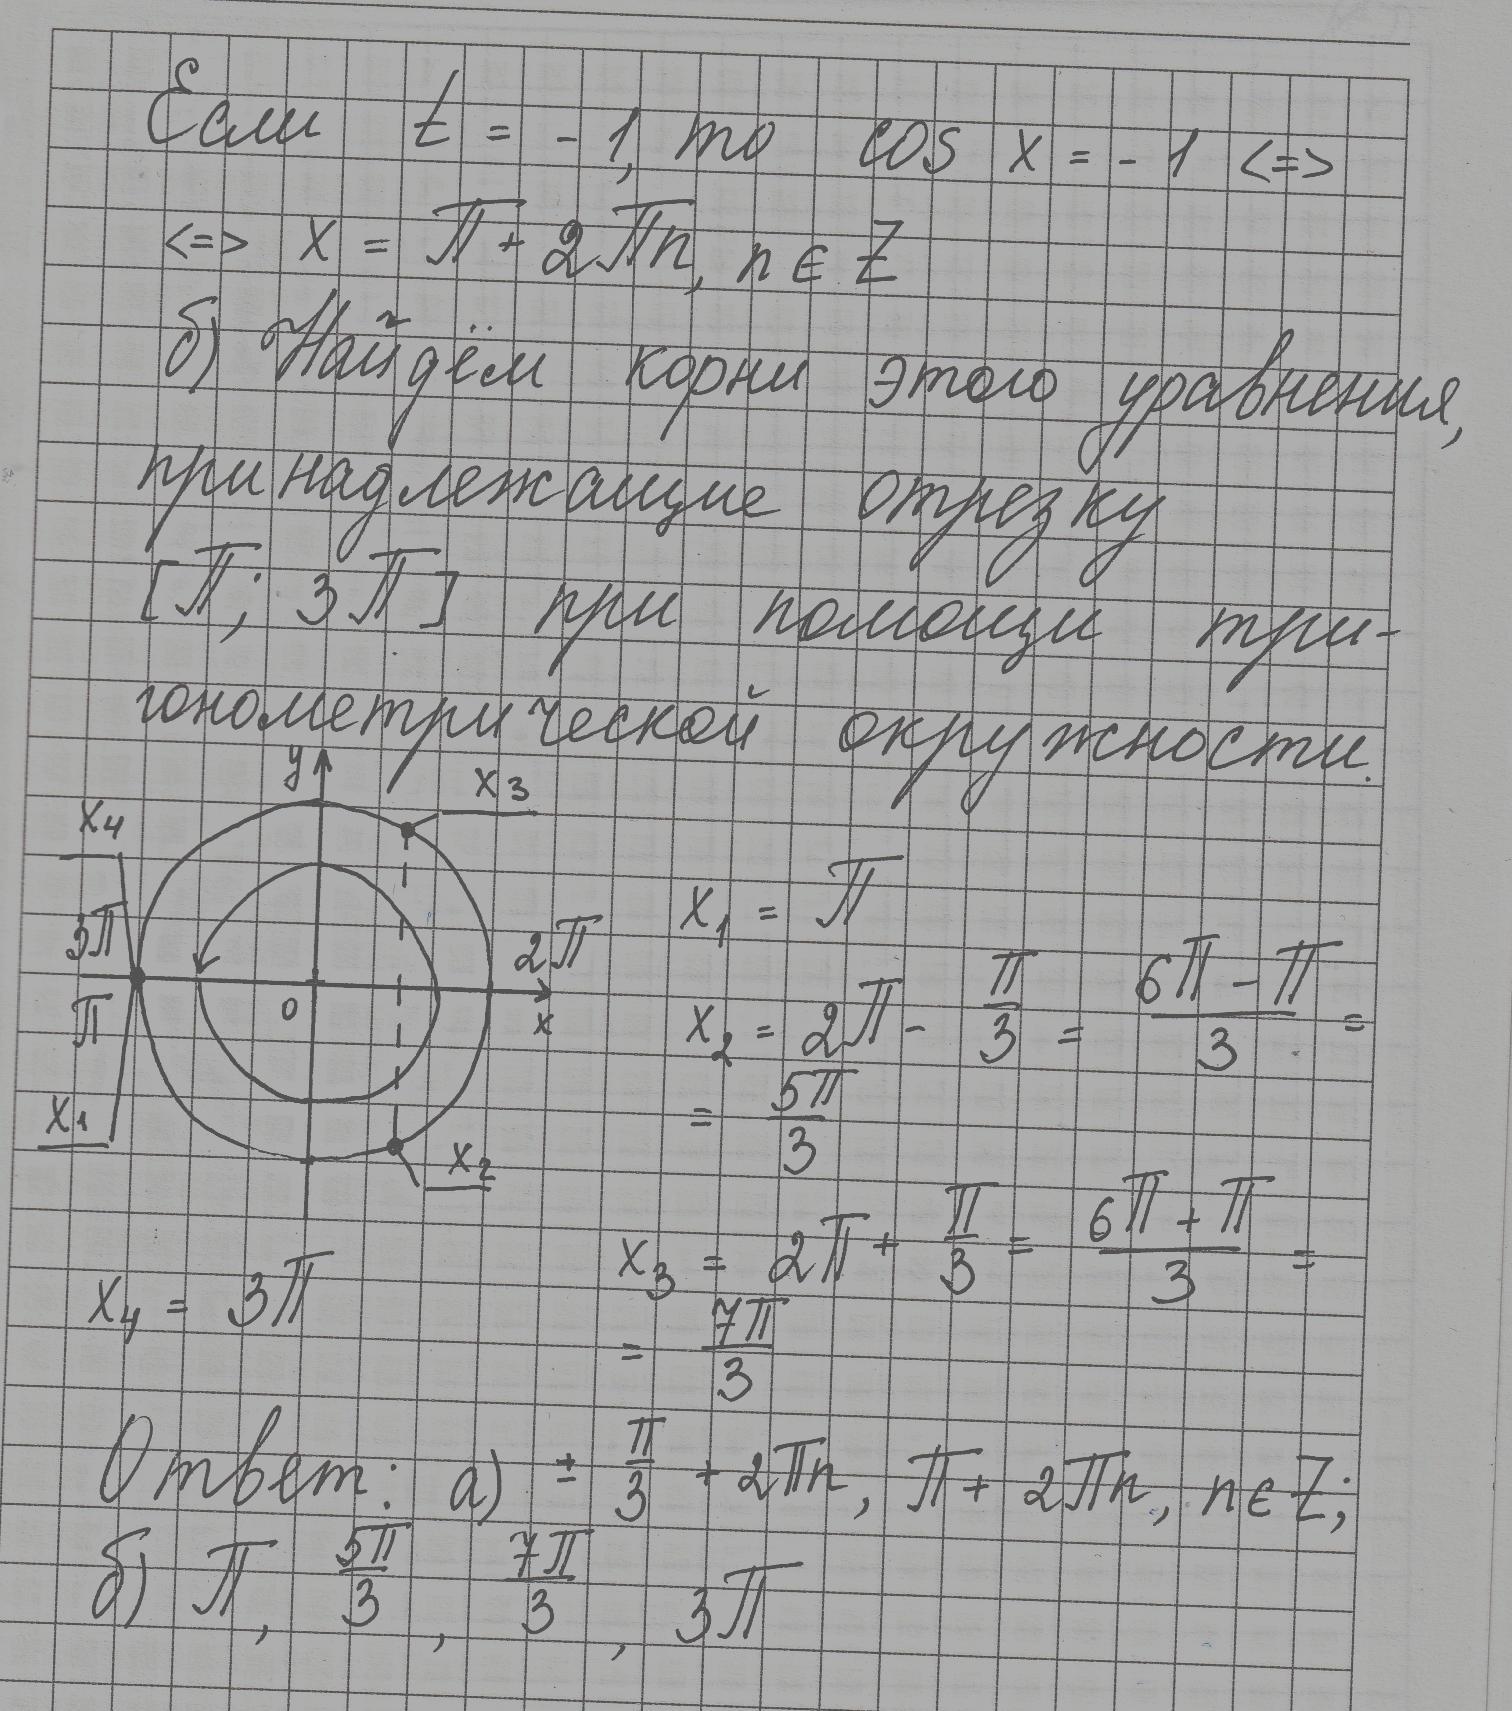 Если t = -1, то cos x = -1 <=>
<=> x = π + 2πn, n ∈ Z
б) Найдём корни этого уравнения,
принадлежащие отрезку
[π; 3π] при помощи три-
гонометрической окружности.
y
x3
x4
3π
2π
π
0
x
x1
x2
x1 = π
x2 = 2π - π/3 = (6π - π)/3 =
= 5π/3
x3 = 2π + π/3 = (6π + π)/3 =
= 7π/3
x4 = 3π
Ответ: а) ± π/3 + 2πn, π + 2πn, n ∈ Z;
б) π, 5π/3, 7π/3, 3π